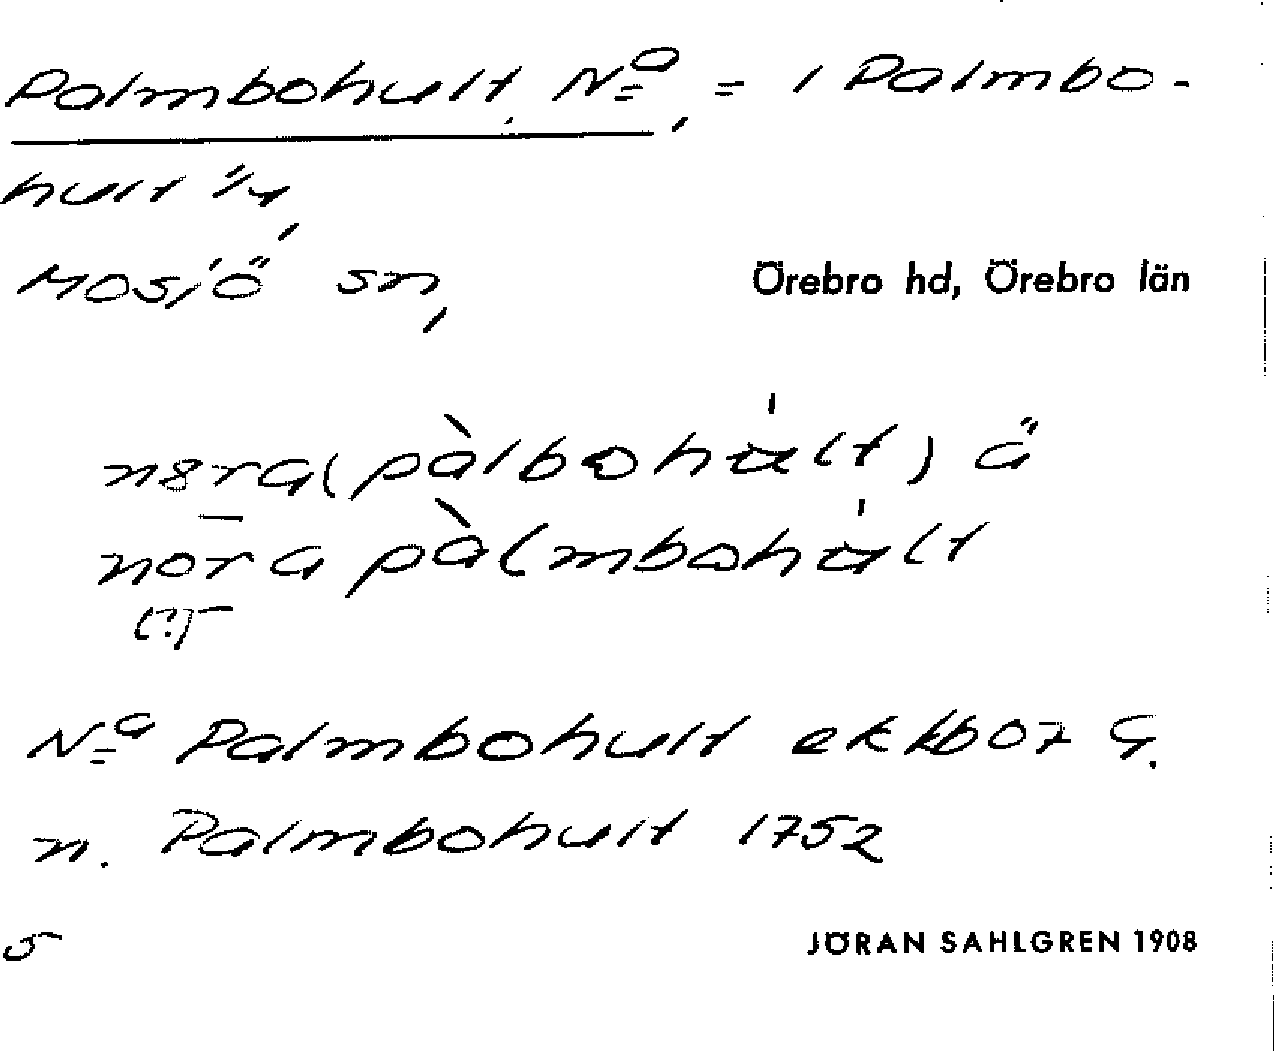 Palmbohult, Nᵃ, = 1 Palmbo-
hult 1/4,
Mosjö sn, Örebro hd, Örebro län
n8ra (pàlbohʉ̍lt) ä
nora pàlmbohʉ̍lt
(?)
Nᵃ Palmbohult ek kb 07 G.
n. Palmbohult 1752
5 JÖRAN SAHLGREN 1908